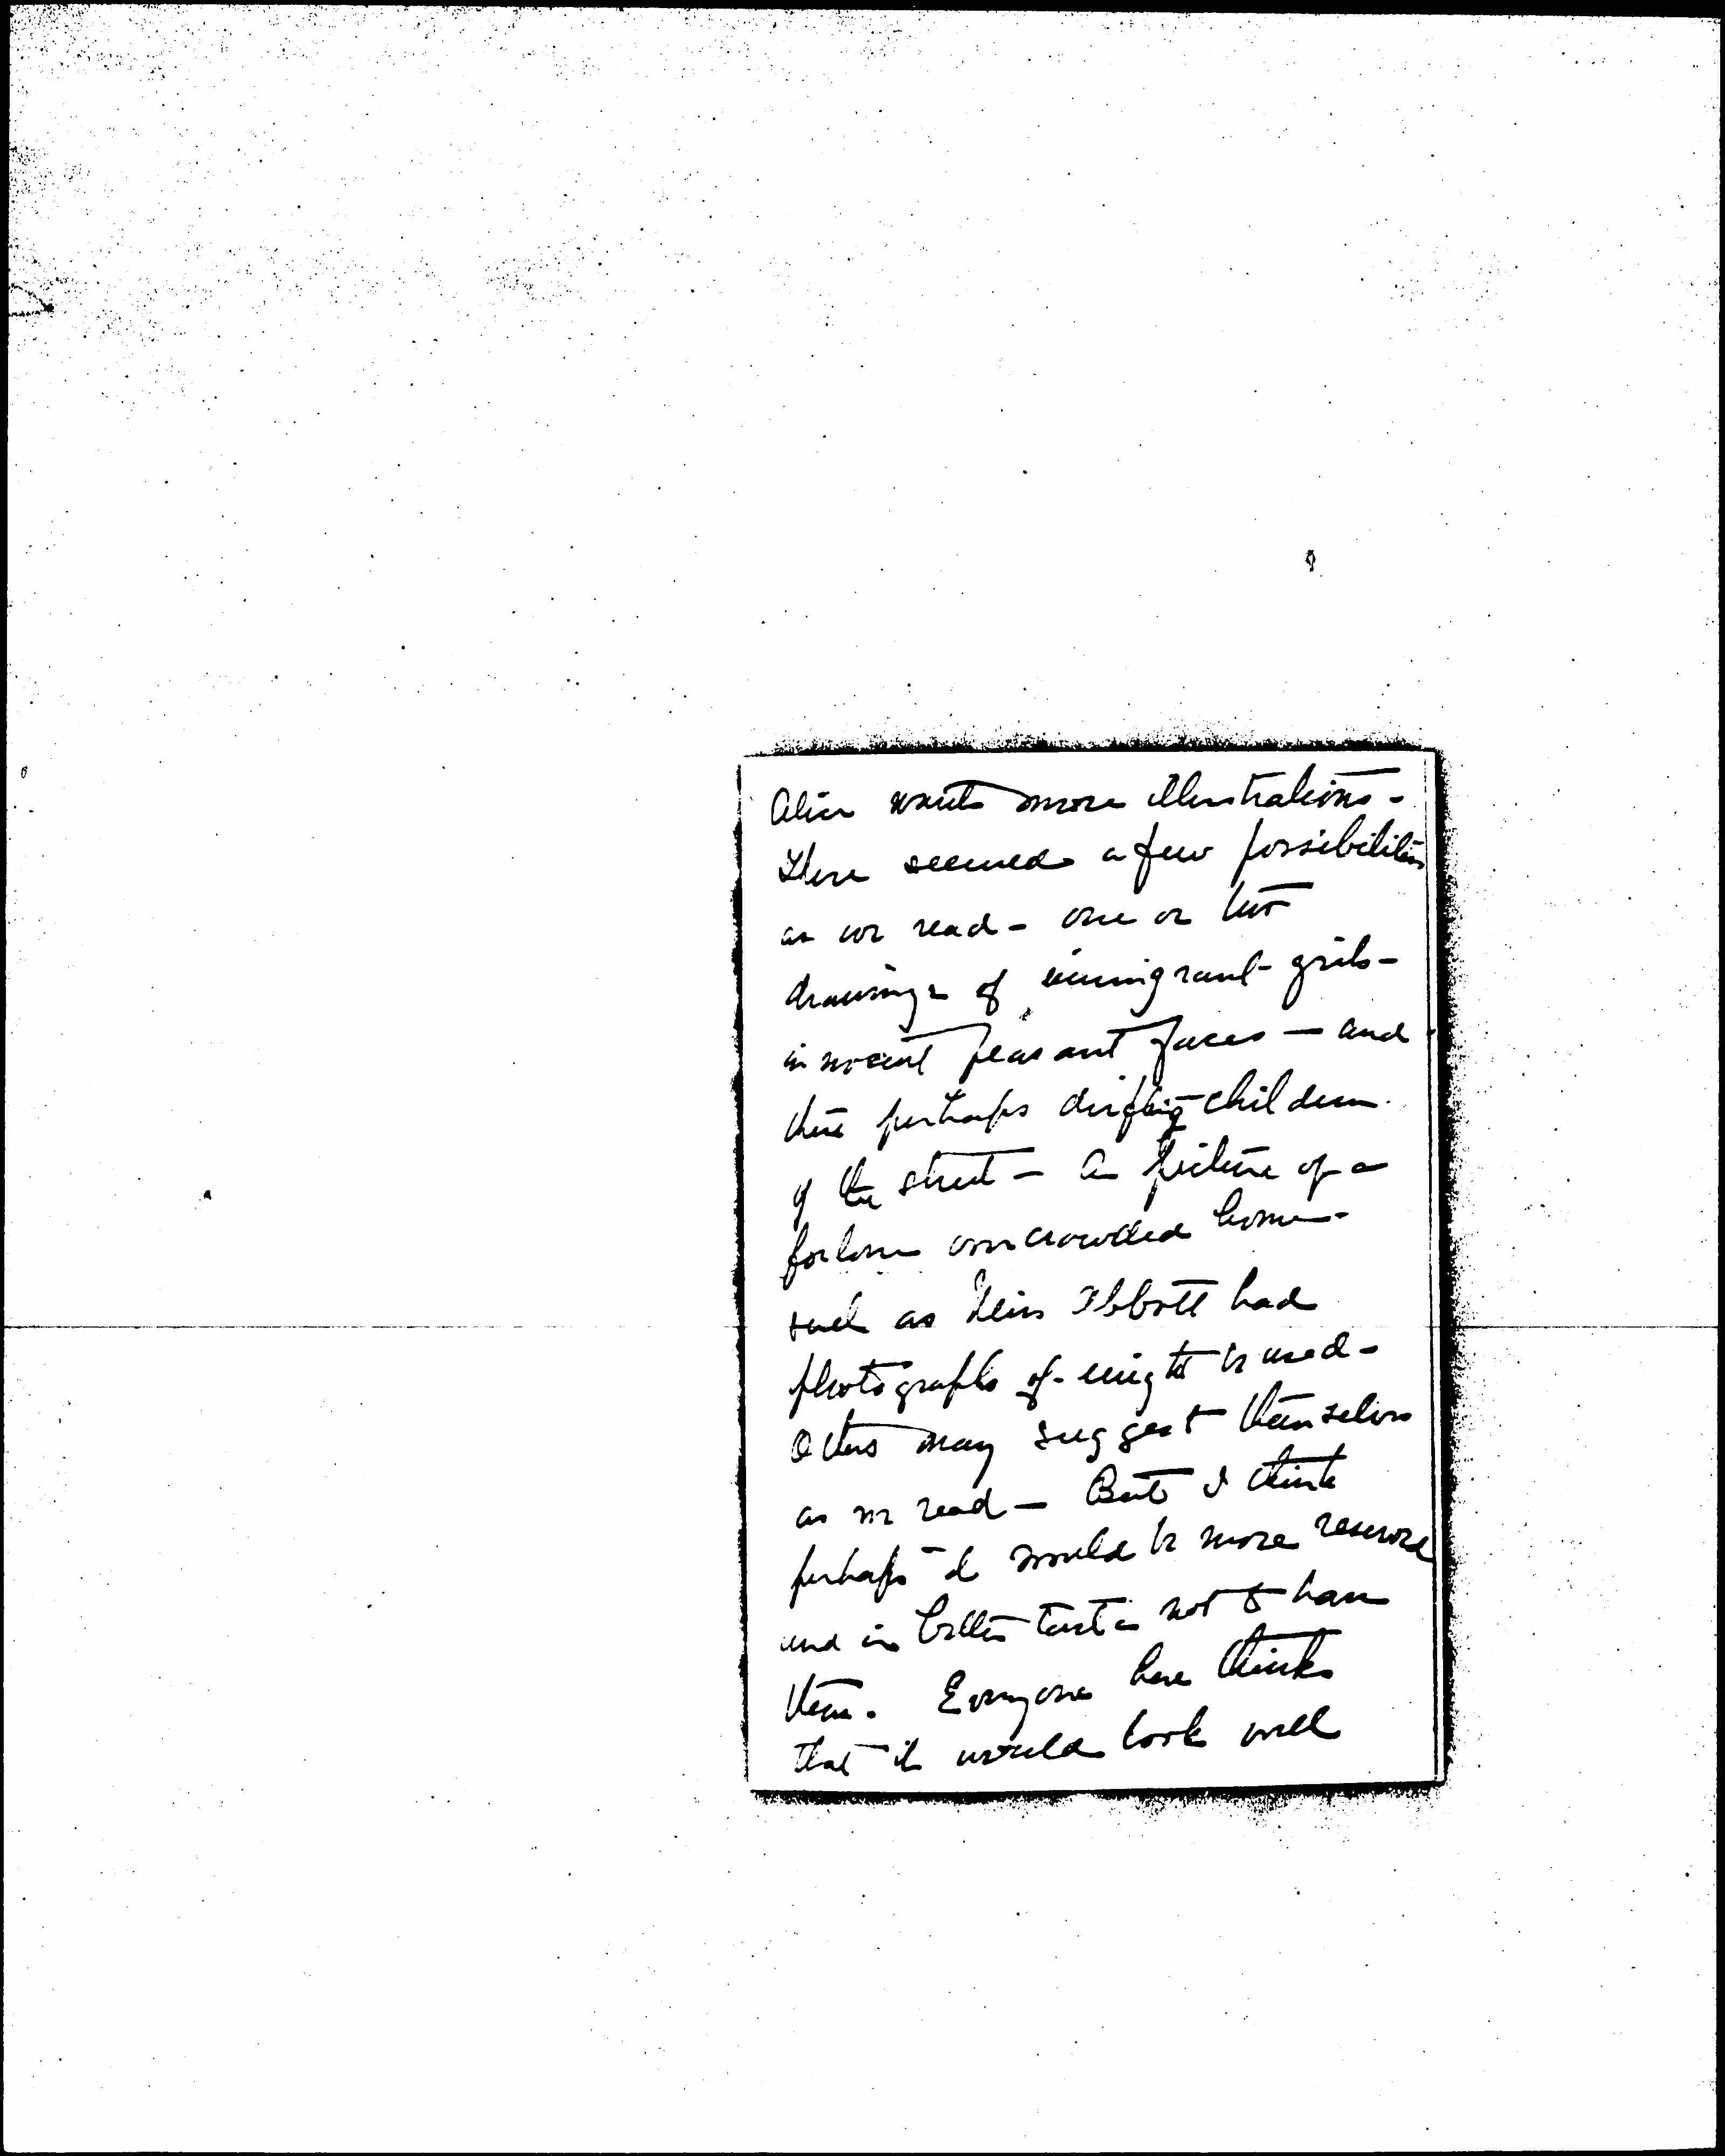 Alice wants more illustrations -
There seemed a few possibilities
as we read - one or two
drawings of immigrant girls -
innocent peasant faces - and
then perhaps children
of the street - a picture of a
forlorn overcrowded home -
such as Miss Abbott had
photographs of - might be used -
Others may suggest themselves
as we read - But I think
perhaps it would be more reserved
and in better taste not to have
them. Everyone here thinks
that it would look well